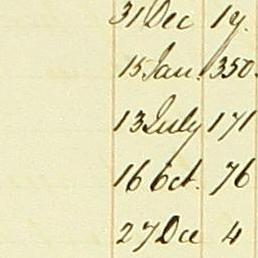 31 Dec 17.
15 Jan. 350.
13 July 171
16 Oct. 76
27 Dec 4